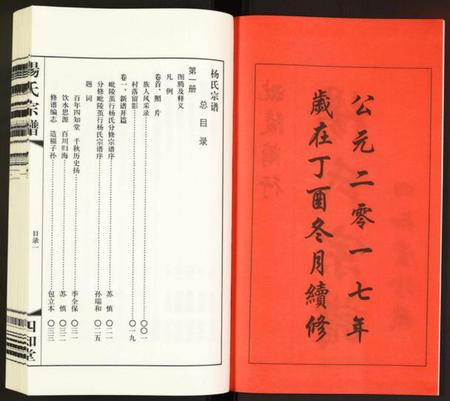 公元二零一七年
歲在丁酉冬月續修
杨氏宗谱
总目录
第一册
凡例
图腾及释义
卷首、照片
族人风采录 〇〇一
村落留影 〇一九
卷一、新谱开篇
毗陵茧行杨氏分修宗谱序 苏慎 〇二一
分修毗陵茧行杨氏宗谱序 孙瑞和 〇二五
题词
百年四知堂 千秋历史扬 季全保 〇三一
饮水思源 百川归海 苏慎 〇三二
修谱编志 造福子孙 包立本 〇三三
楊氏宗譜
目录一
四知堂